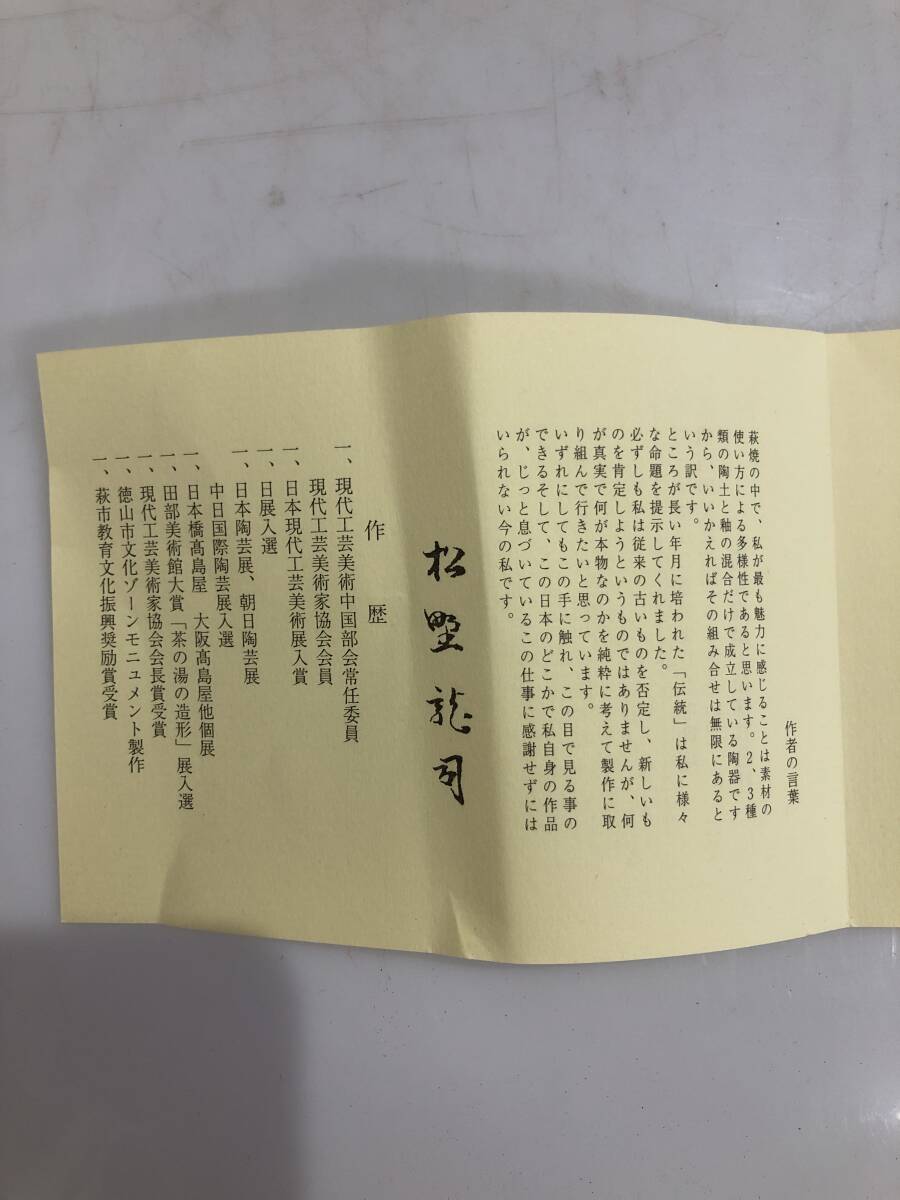 作者の言葉
萩焼の中で、私が最も魅力に感じることは素材の
使い方による多様性であると思います。2、3種
類の陶土と釉の混合だけで成立している陶器です
から、いいかえればその組み合せは無限にあると
いう訳です。
ところが長い年月に培われた「伝統」は私に様々
な命題を提示してくれました。
必ずしも私は従来の古いものを否定し、新しいも
のを肯定しようというものではありませんが、何
が真実で何が本物なのかを純粋に考えて製作に取
り組んで行きたいと思っています。
いずれにしてもこの手に触れ、この目で見る事の
できるそして、この日本のどこかで私自身の作品
が、じっと息づいているこの仕事に感謝せずには
いられない今の私です。
松野龍司
作歴
一、現代工芸美術中国部会常任委員
現代工芸美術家協会会員
一、日本現代工芸美術展入賞
一、日展入選
一、日本陶芸展、朝日陶芸展
中日国際陶芸展入選
一、日本橋髙島屋 大阪髙島屋他個展
一、田部美術館大賞「茶の湯の造形」展入選
一、現代工芸美術家協会会長賞受賞
一、徳山市文化ゾーンモニュメント製作
一、萩市教育文化振興奨励賞受賞